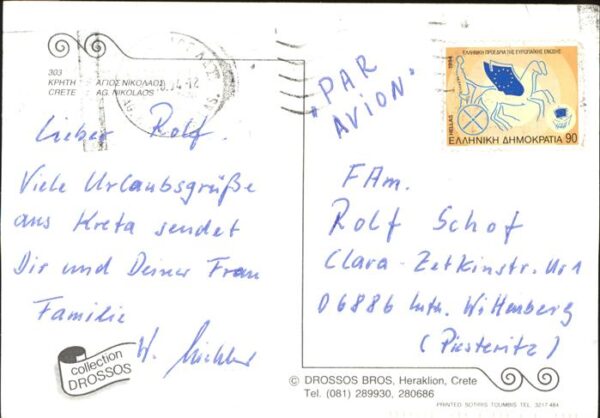 303
ΚΡΗΤΗ ΑΓΙΟΣ ΝΙΚΟΛΑΟΣ
CRETE AG. NIKOLAOS
Lieber Rolf.
Viele Urlaubsgrüße
aus Kreta sendet
Dir und Deiner Frau
Familie
W.
collection
DROSSOS
"PAR
AVION"
ΕΛΛΗΝΙΚΗ ΠΡΟΕΔΡΙΑ ΤΗΣ ΕΥΡΩΠΑΪΚΗΣ ΕΝΩΣΗΣ
1994
HELLAS
ΕΛΛΗΝΙΚΗ ΔΗΜΟΚΡΑΤΙΑ 90
FAm.
Rolf Schof
Clara-Zetkinstr. Nr 1
06886 Luth. Wittenberg
(Piesteritz)
© DROSSOS BROS, Heraklion, Crete
Tel. (081) 289930, 280686
PRINTED SOTIRIS TOUMBIS TEL. 3217-484